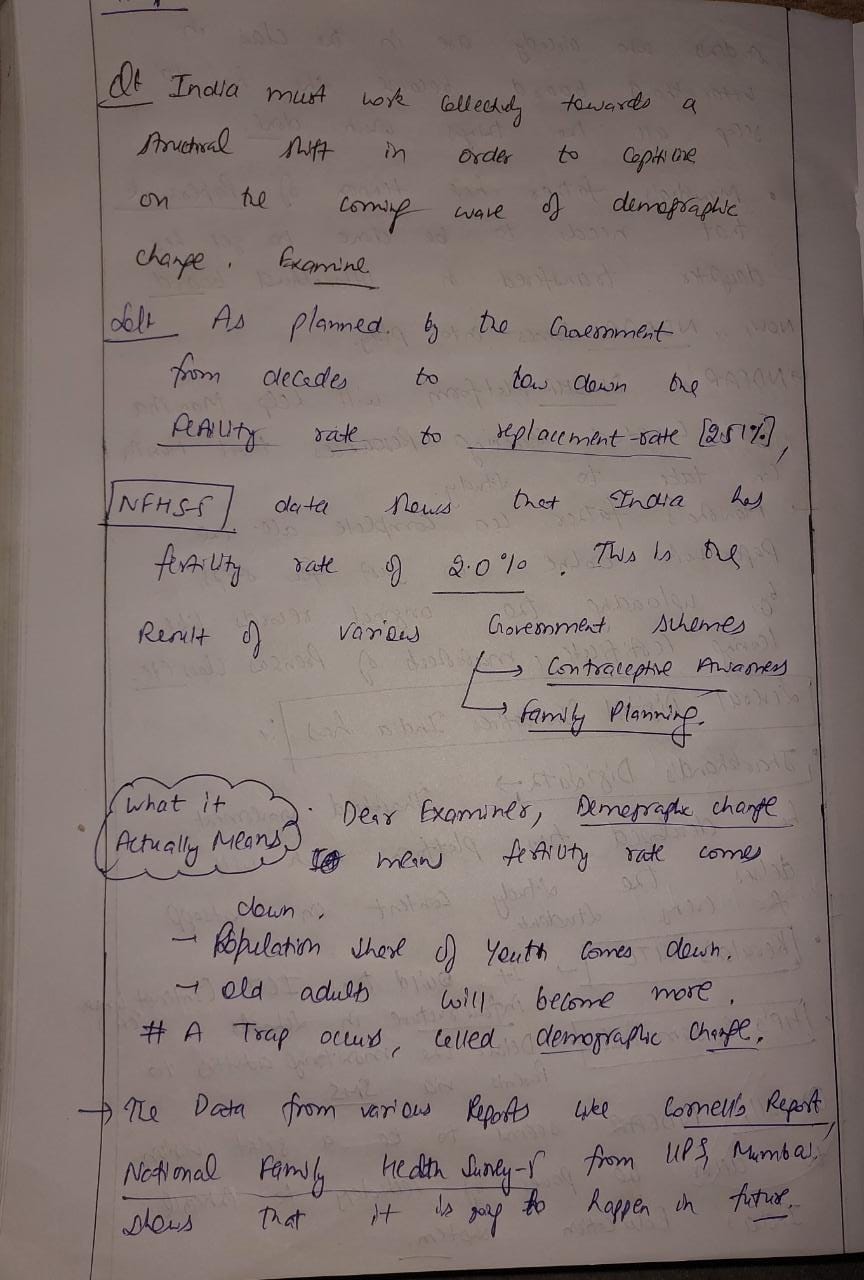 Q1 India must work collectively towards a
structural shift in order to capitalize
on the coming wave of demographic
change. Examine
Sol: As planned by the Government
from decades to low down the
fertility rate to replacement-rate [2.1%],
NFHS-5 data shows that India has
fertility rate of 2.0%. This is the
Result of various Government schemes
↳ Contraceptive Awarness
↳ Family Planning.
What it Actually Means
Dear Examiner, Demographic change
means fertility rate comes
down.
→ Population share of Youth comes down.
→ Old adults will become more.
# A Trap occurs, called demographic change.
→ The Data from various Reports like Cornell's Report,
National Family Health Survey-5 from Mumbai,
shows that it is going to happen in future.